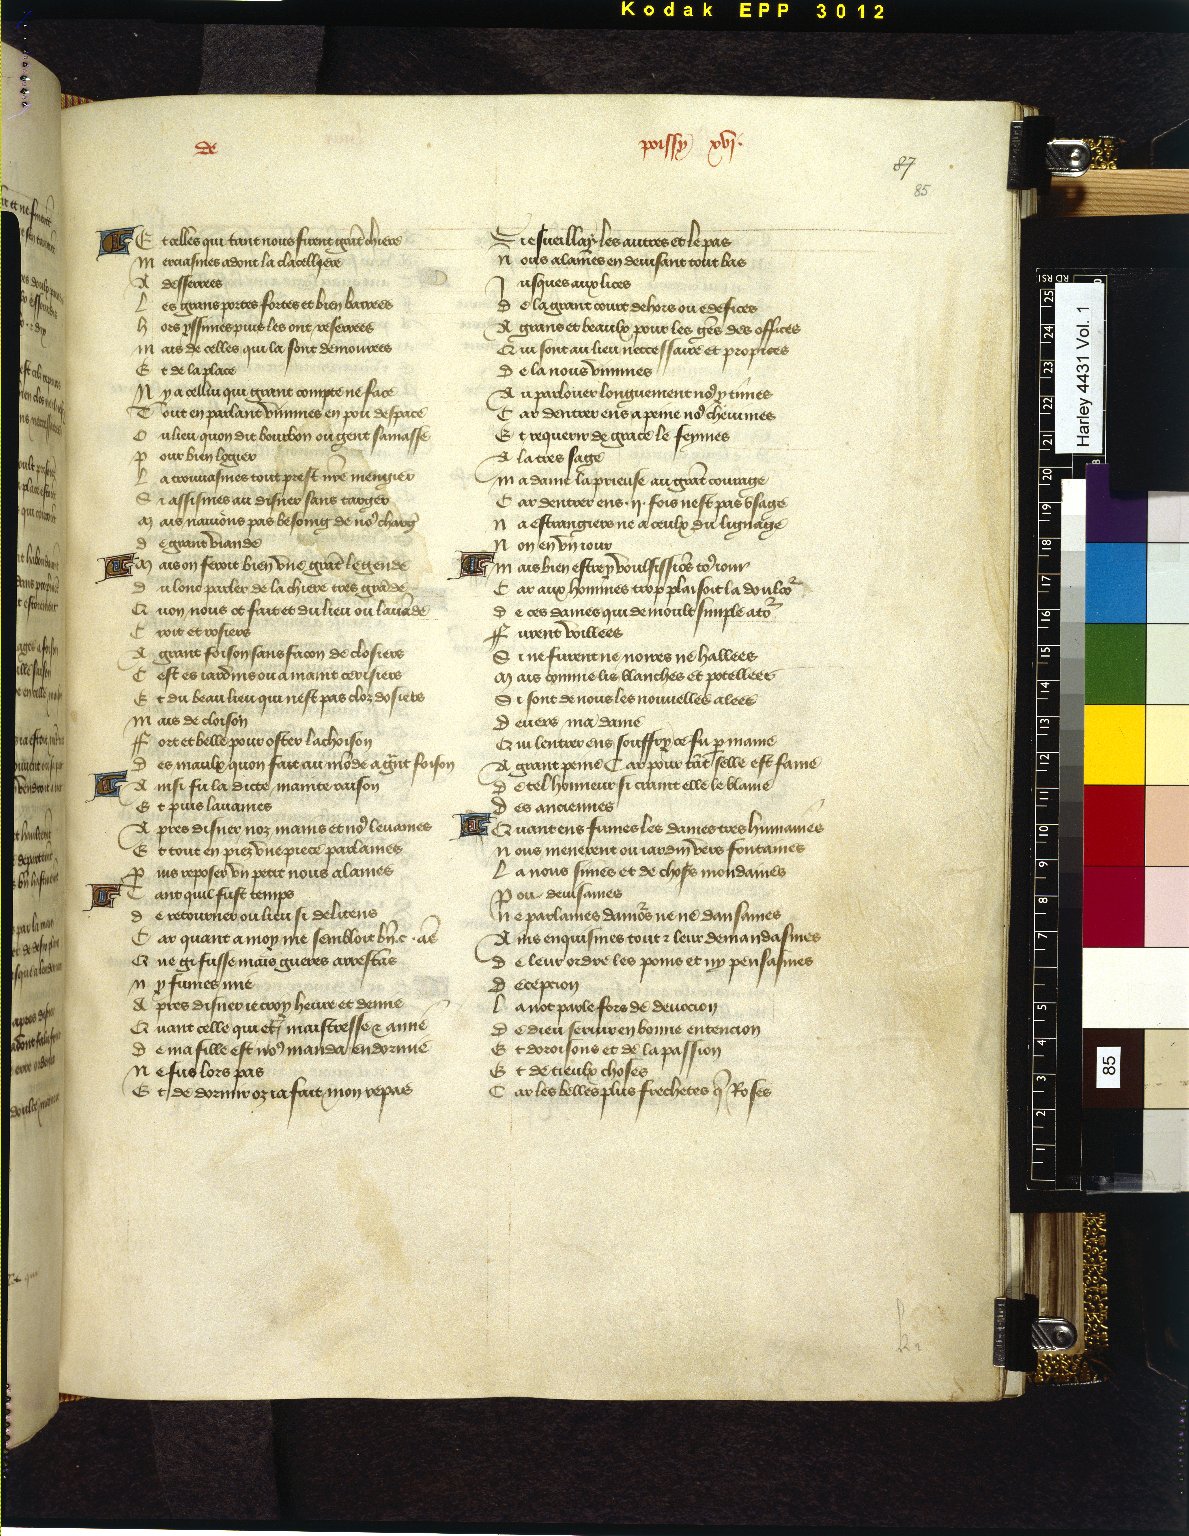 Kodak EPP 3012
de
poissy xvi.
87
85
Et celles qui tant nous firent grāt chiere
Merciasmes adont la clacelliere
A desserrees
Les grans portes fortes et bien barrees
Hors yssimes puis les ont reserrees
Mais de celles qui la sont demourees
Et de la place
N y a celluy qui grant compte ne face
Tout en parlant vīnmes en pou despace
Ou lieu quon dit bourbon ou gent samasse
Pour bien logier
La trouvasmes tout prest nr̄e mengier
Si assismes au disner sans targer
Mais navions pas besoing de no9 charḡ
De grant viande
Mais on feroit bien vne grāt legende
Du lonc parler de la chiere tres grāde
Quon nous ot fait et du lieu ou lavāde
Croit et rosiers
A grant foison sans facon de closiers
Cest es iardins ou a maint cerisiers
Et du beau lieu qui nest pas cloz dosiers
Mais de cloison
Fort et belle pour oster lachoison
Des maulx quon fait au mōde a gr̄nt foison
Ainsi fu la dicte mainte raison
Et puis lavames
Apres disner noz mains et no9 levames
Et tout en piez vne piece parlames
Puis reposer vn petit nous alames
Tant quil fust temps
De retourner ou lieu si delitens
Car quant a moy me sembloit bn̄. c. ās
Que gi fusse mais gueres arrestās
N y fumes mie
Apres disner ie croy heure et demie
Quant celle qui est maistresse et amie
De ma fille est vo9 manda endormie
Ne fus lors pas
Et de dormir oz ia fait mon repas
Si esueillay les autres et le pas
Nous alames en deuisant tout bas
Iusques aux lices
De la grant court dehors ou edefices
A grans et beaulx pour les gēs des offices
Qui sont au lieu neccessaire et propices
De la nous vīnmes
Au parlouer longuement no9 y tīmes
Car dentrer ens a peine no9 cheuīmes
Et requerir de grace le feymes
A la tres sage
Ma dame la prieuse au grāt courage
Car dentrer ens .ij. fois nest pas vsage
Na estrangiere ne a ceulx du lignage
Non en vn iour
Mais bien estre y voulsissiōs to9 iour
Car aux hommes trop plaisoit la doulco2
De ces dames qui de moult simple ato2
Furent voillees
Si ne furent ne noires ne hallees
Mais comme lis blanches et potellees
Si sont de nous les nouvelles alees
Devers ma dame
Qui lentrer ens souffry ce fu p maine
A grant peine Car pour tāt selle est fame
De tel honneur si craint elle le blame
Des anciennes
Quant ens fumes les dames tres humaines
Nous menerent ou iardin vers fontaines
La nous simes et de choses mondaines
Pou deuisames
Ne parlames damo9s ne ne dansames
Ains enquismes tout z leur demandasmes
De leur ordre les poins et ny pensasmes
Decepcion
La not parle fors de devocion
De dieu servir en bonne entencion
Et doroisons et de la passion
Et de tieulx choses
Car les belles plus frechetes q̄ Roses
Harley 4431 Vol. 1
85